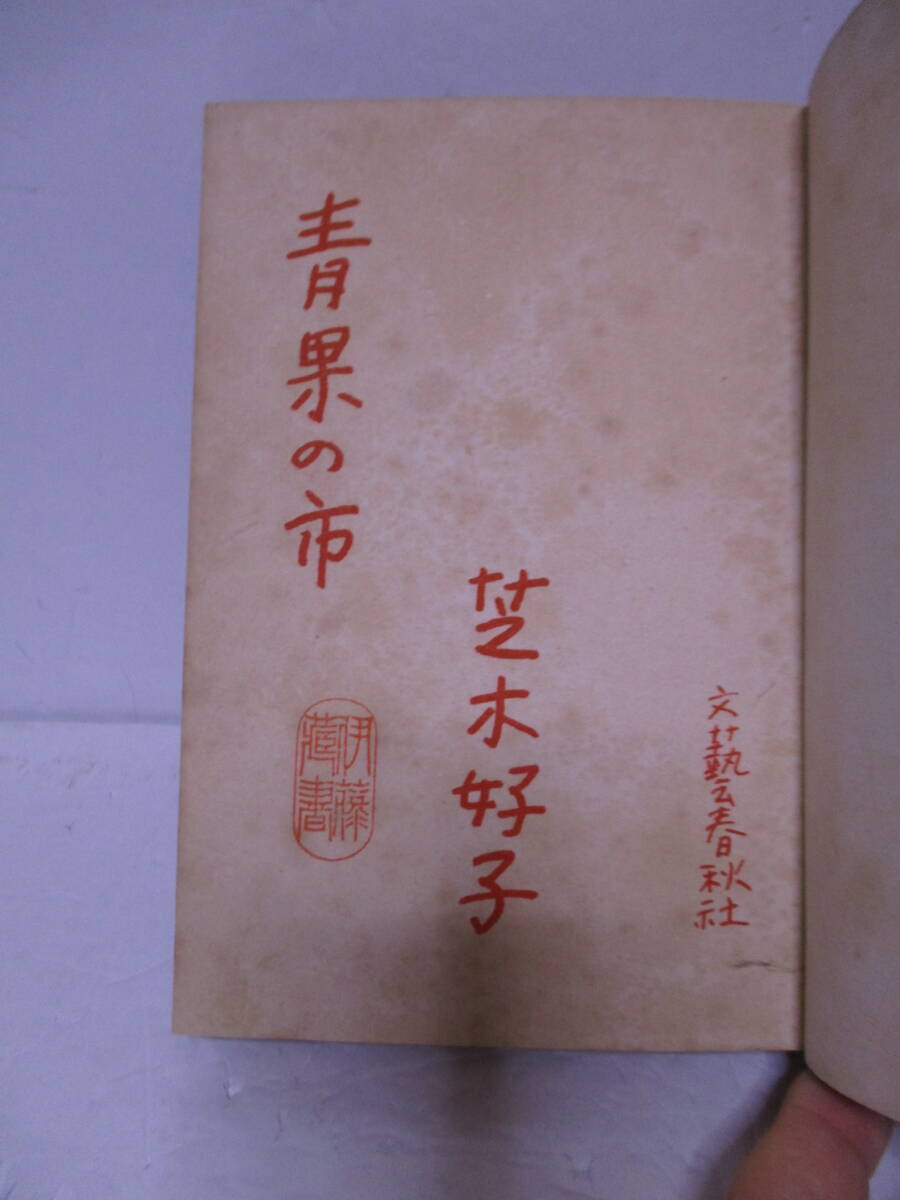 青果の市
芝木好子
文藝春秋社
伊藤
蔵書